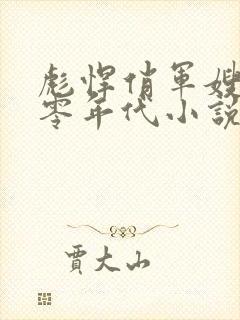 彪悍俏軍嫂
零年代小說
賈大山